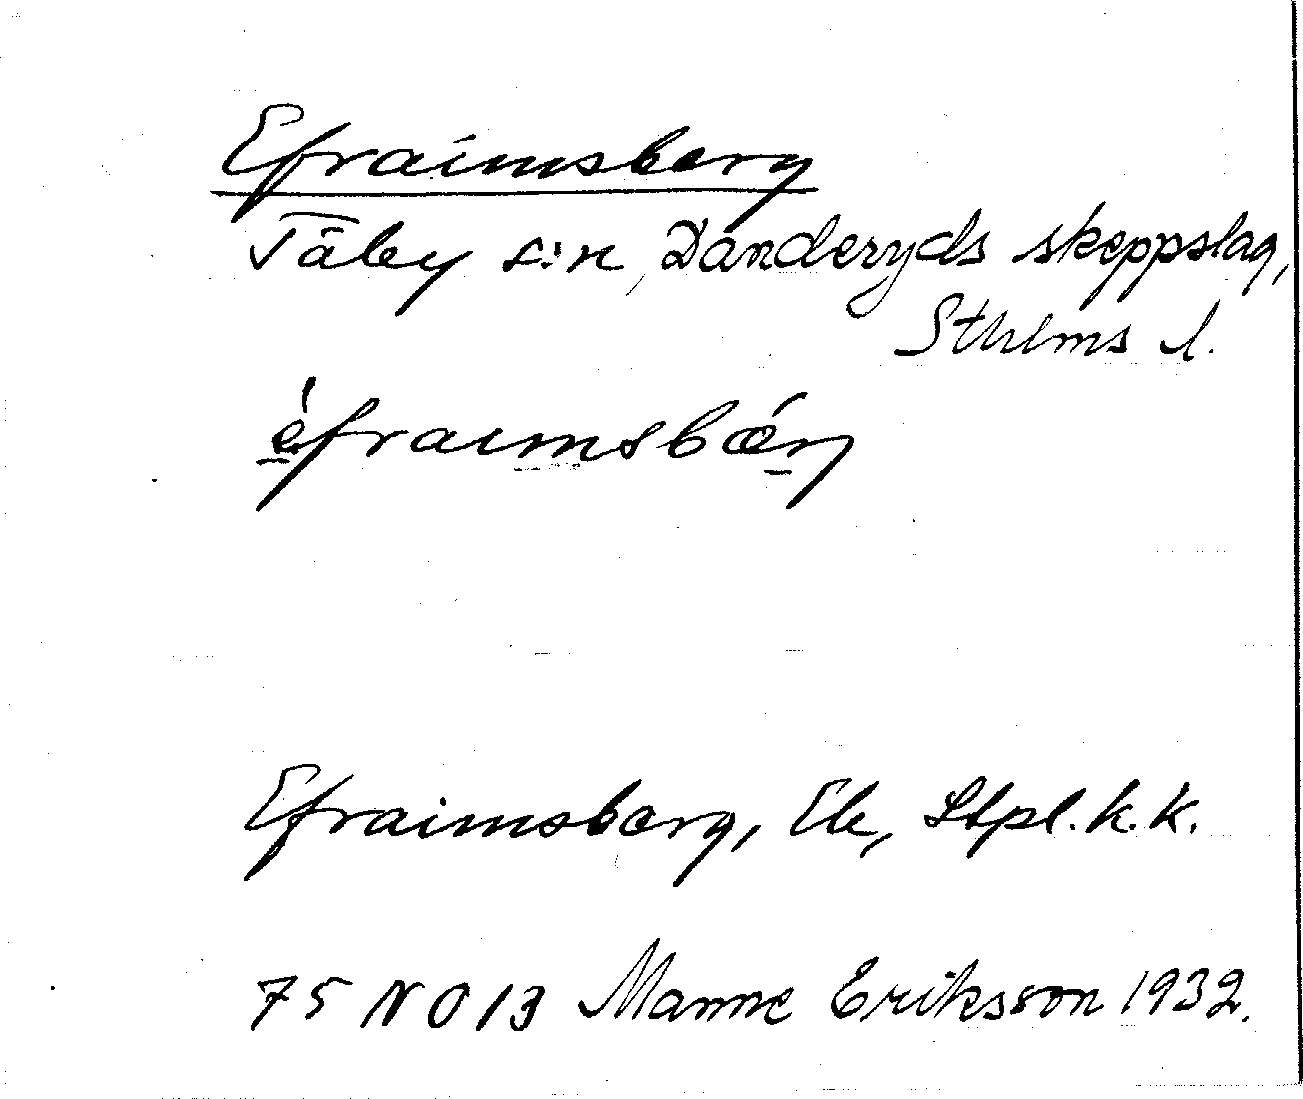 Efraimsberg
Täby s:n, Danderyds skeppslag,
Sthlms l.
èfraimsbær̨
Efraimsberg, Stpl. k.k.
75 NO 13 Manne Eriksson 1932.